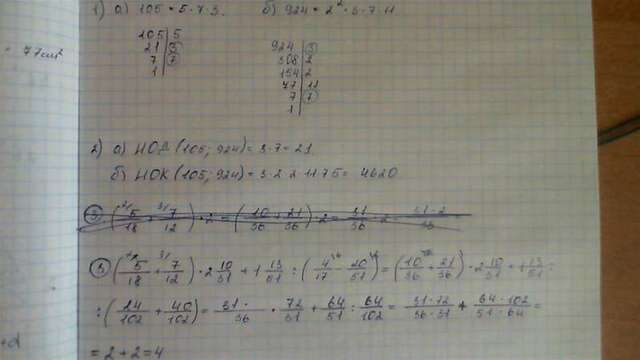 = 77 см²
1) а) 105 = 5 · 7 · 3. б) 924 = 2² · 3 · 7 · 11
105 | 5
21 | 3
7 | 7
1
924 | 3
308 | 2
154 | 2
77 | 11
7 | 7
1
2) а) НОД (105; 924) = 3 · 7 = 21
б) НОК (105; 924) = 3 · 2 · 2 · 11 · 7 · 5 = 4620
3) (5/18 + 7/12) · 2 = (10/36 + 21/36) · 2 = 31/36 · 2 = 31 · 2/36
3) (5/18 + 7/12) · 2 10/31 + 1 13/51 : (4/17 - 20/51) = (10/36 + 21/36) · 2 10/31 + 1 13/51 :
: (24/102 + 40/102) = 31 ·/36 · 72/31 + 64/51 : 64/102 = 31 · 72/36 · 31 + 64 · 102/51 · 64 =
= 2 + 2 = 4